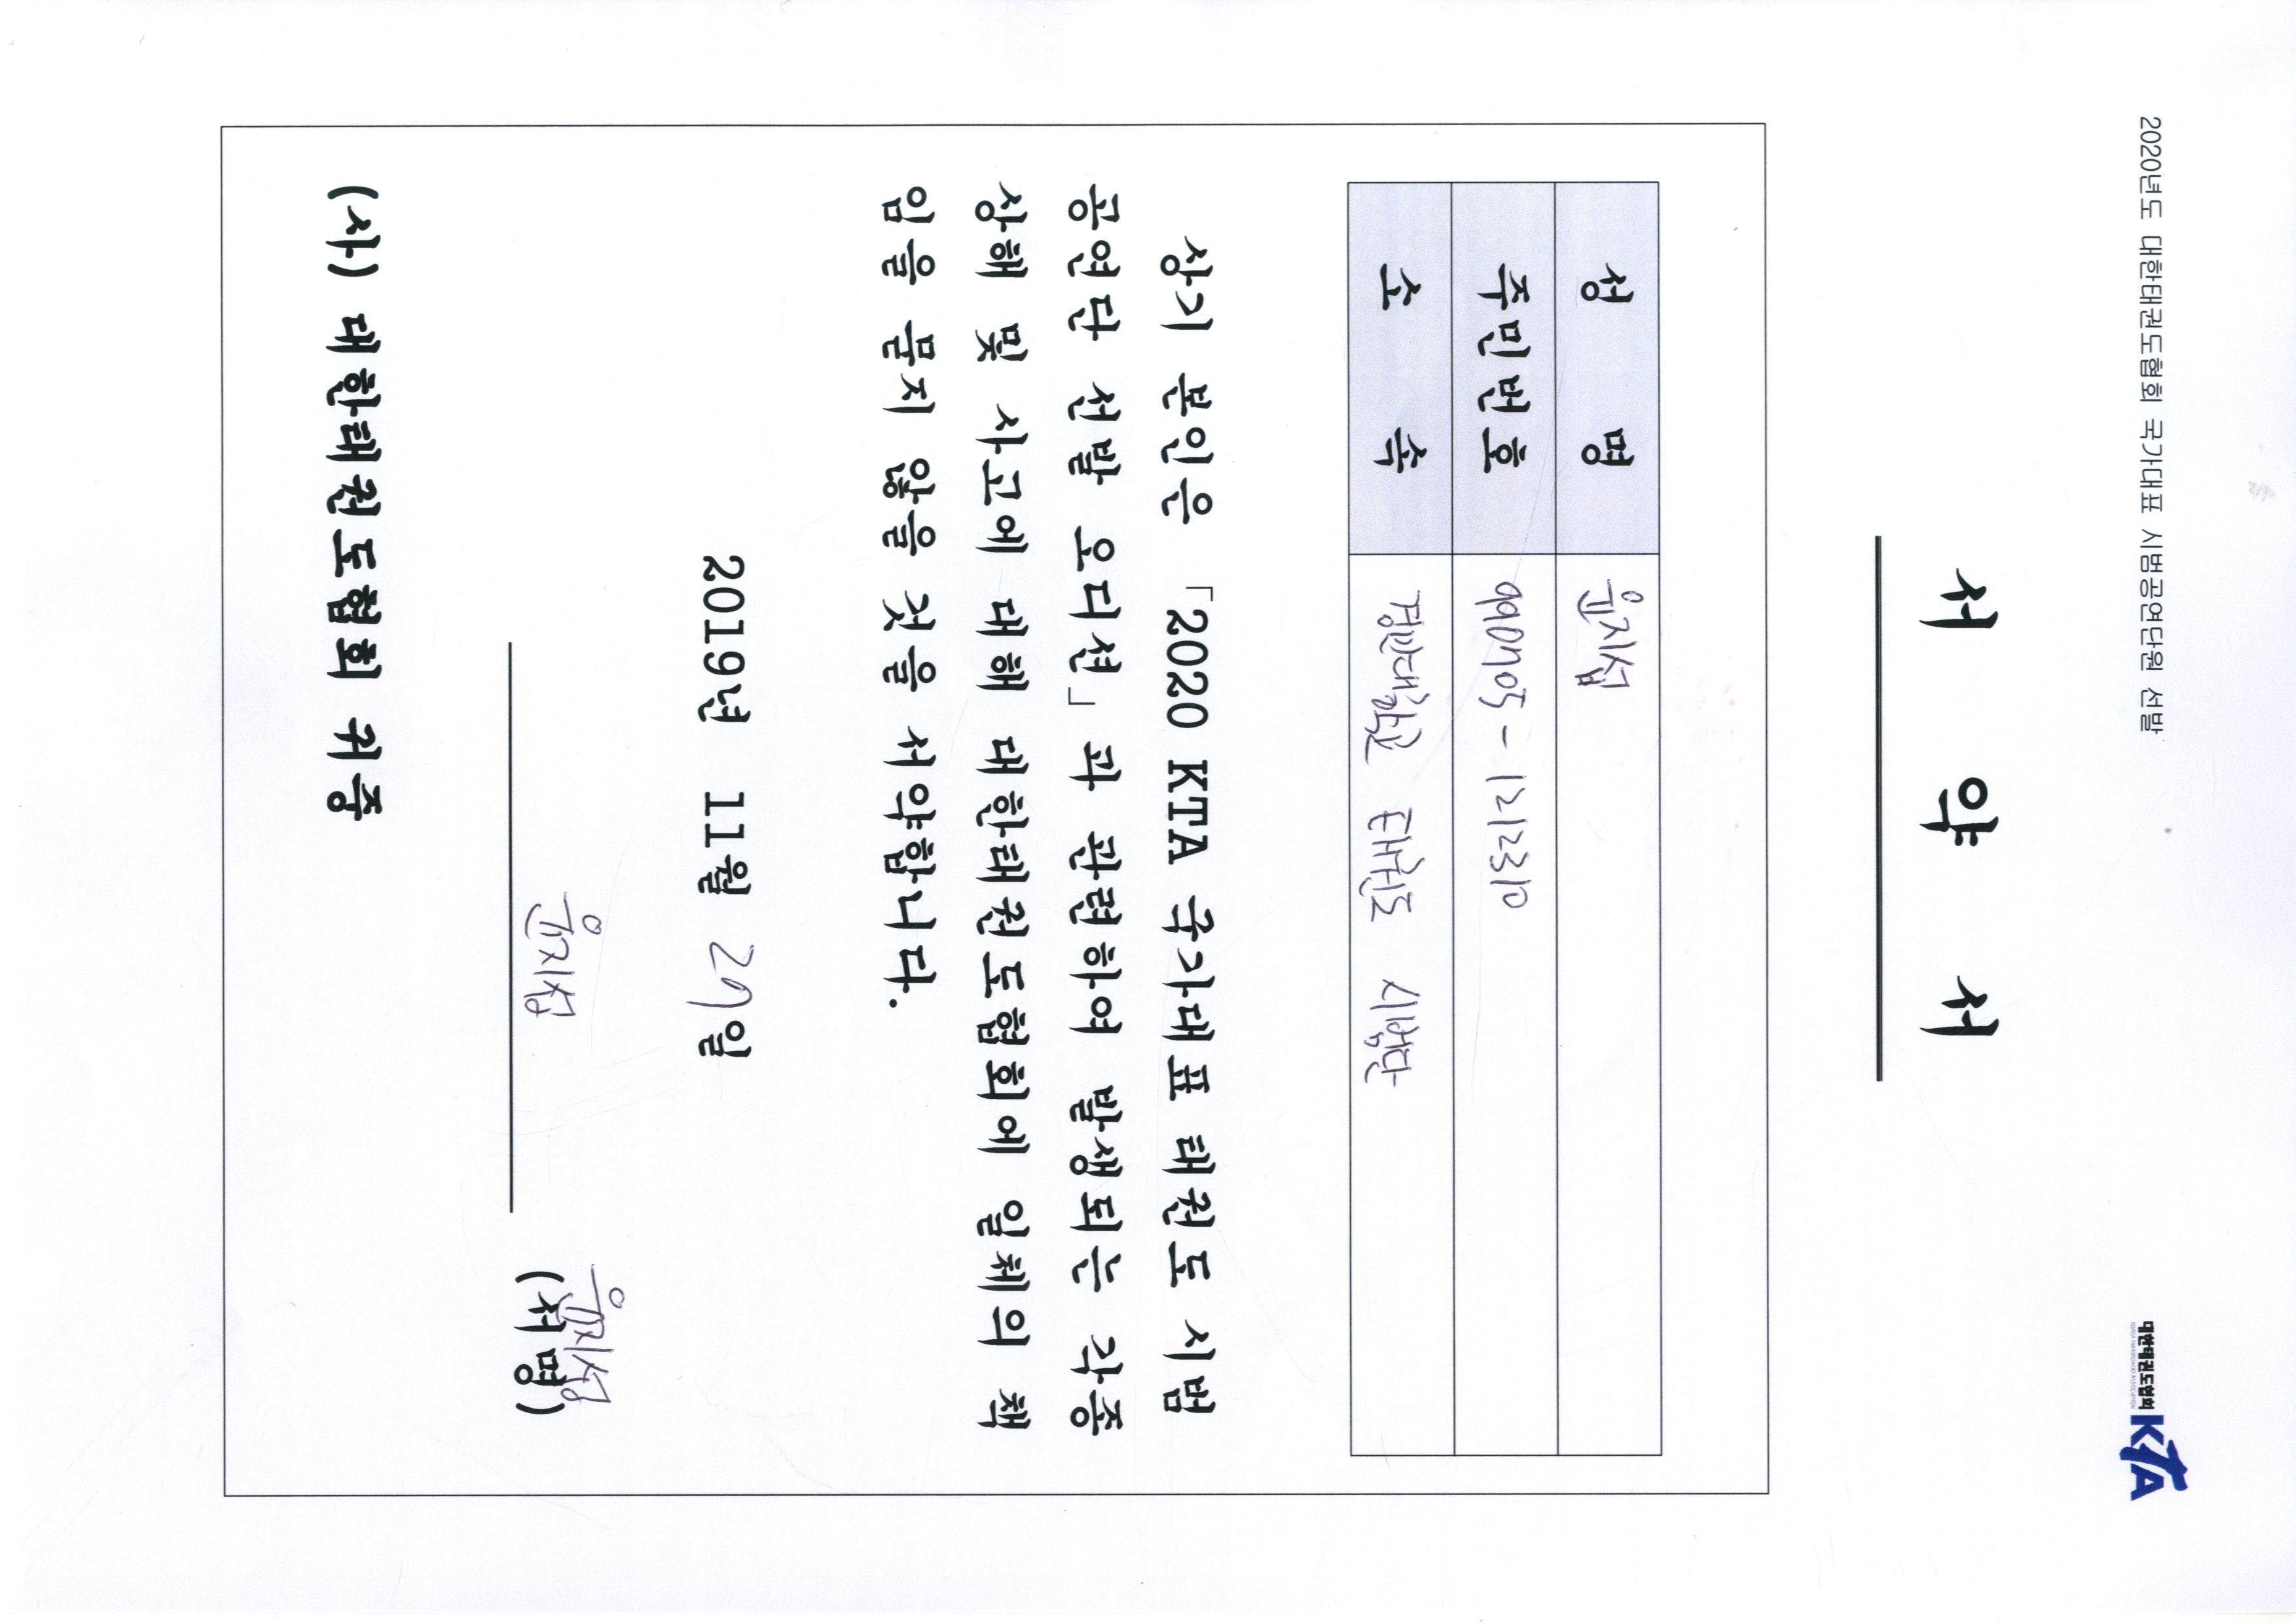 2020년도 대한태권도협회 국가대표 시범공연단원 선발
대한태권도협회
KOREA TAEKWONDO ASSOCIATION
KTA
서 약 서
성 명 윤지섭
주민번호 990705 - 1212310
소 속 경민대학교 태권도 시범단
상기 본인은 「2020 KTA 국가대표 태권도 시범
공연단 선발 오디션」과 관련하여 발생되는 각종
상해 및 사고에 대해 대한태권도협회에 일체의 책
임을 묻지 않을 것을 서약합니다.
2019년 11월 29일
윤지섭 (서명) 윤지섭
(사) 대한태권도협회 귀중